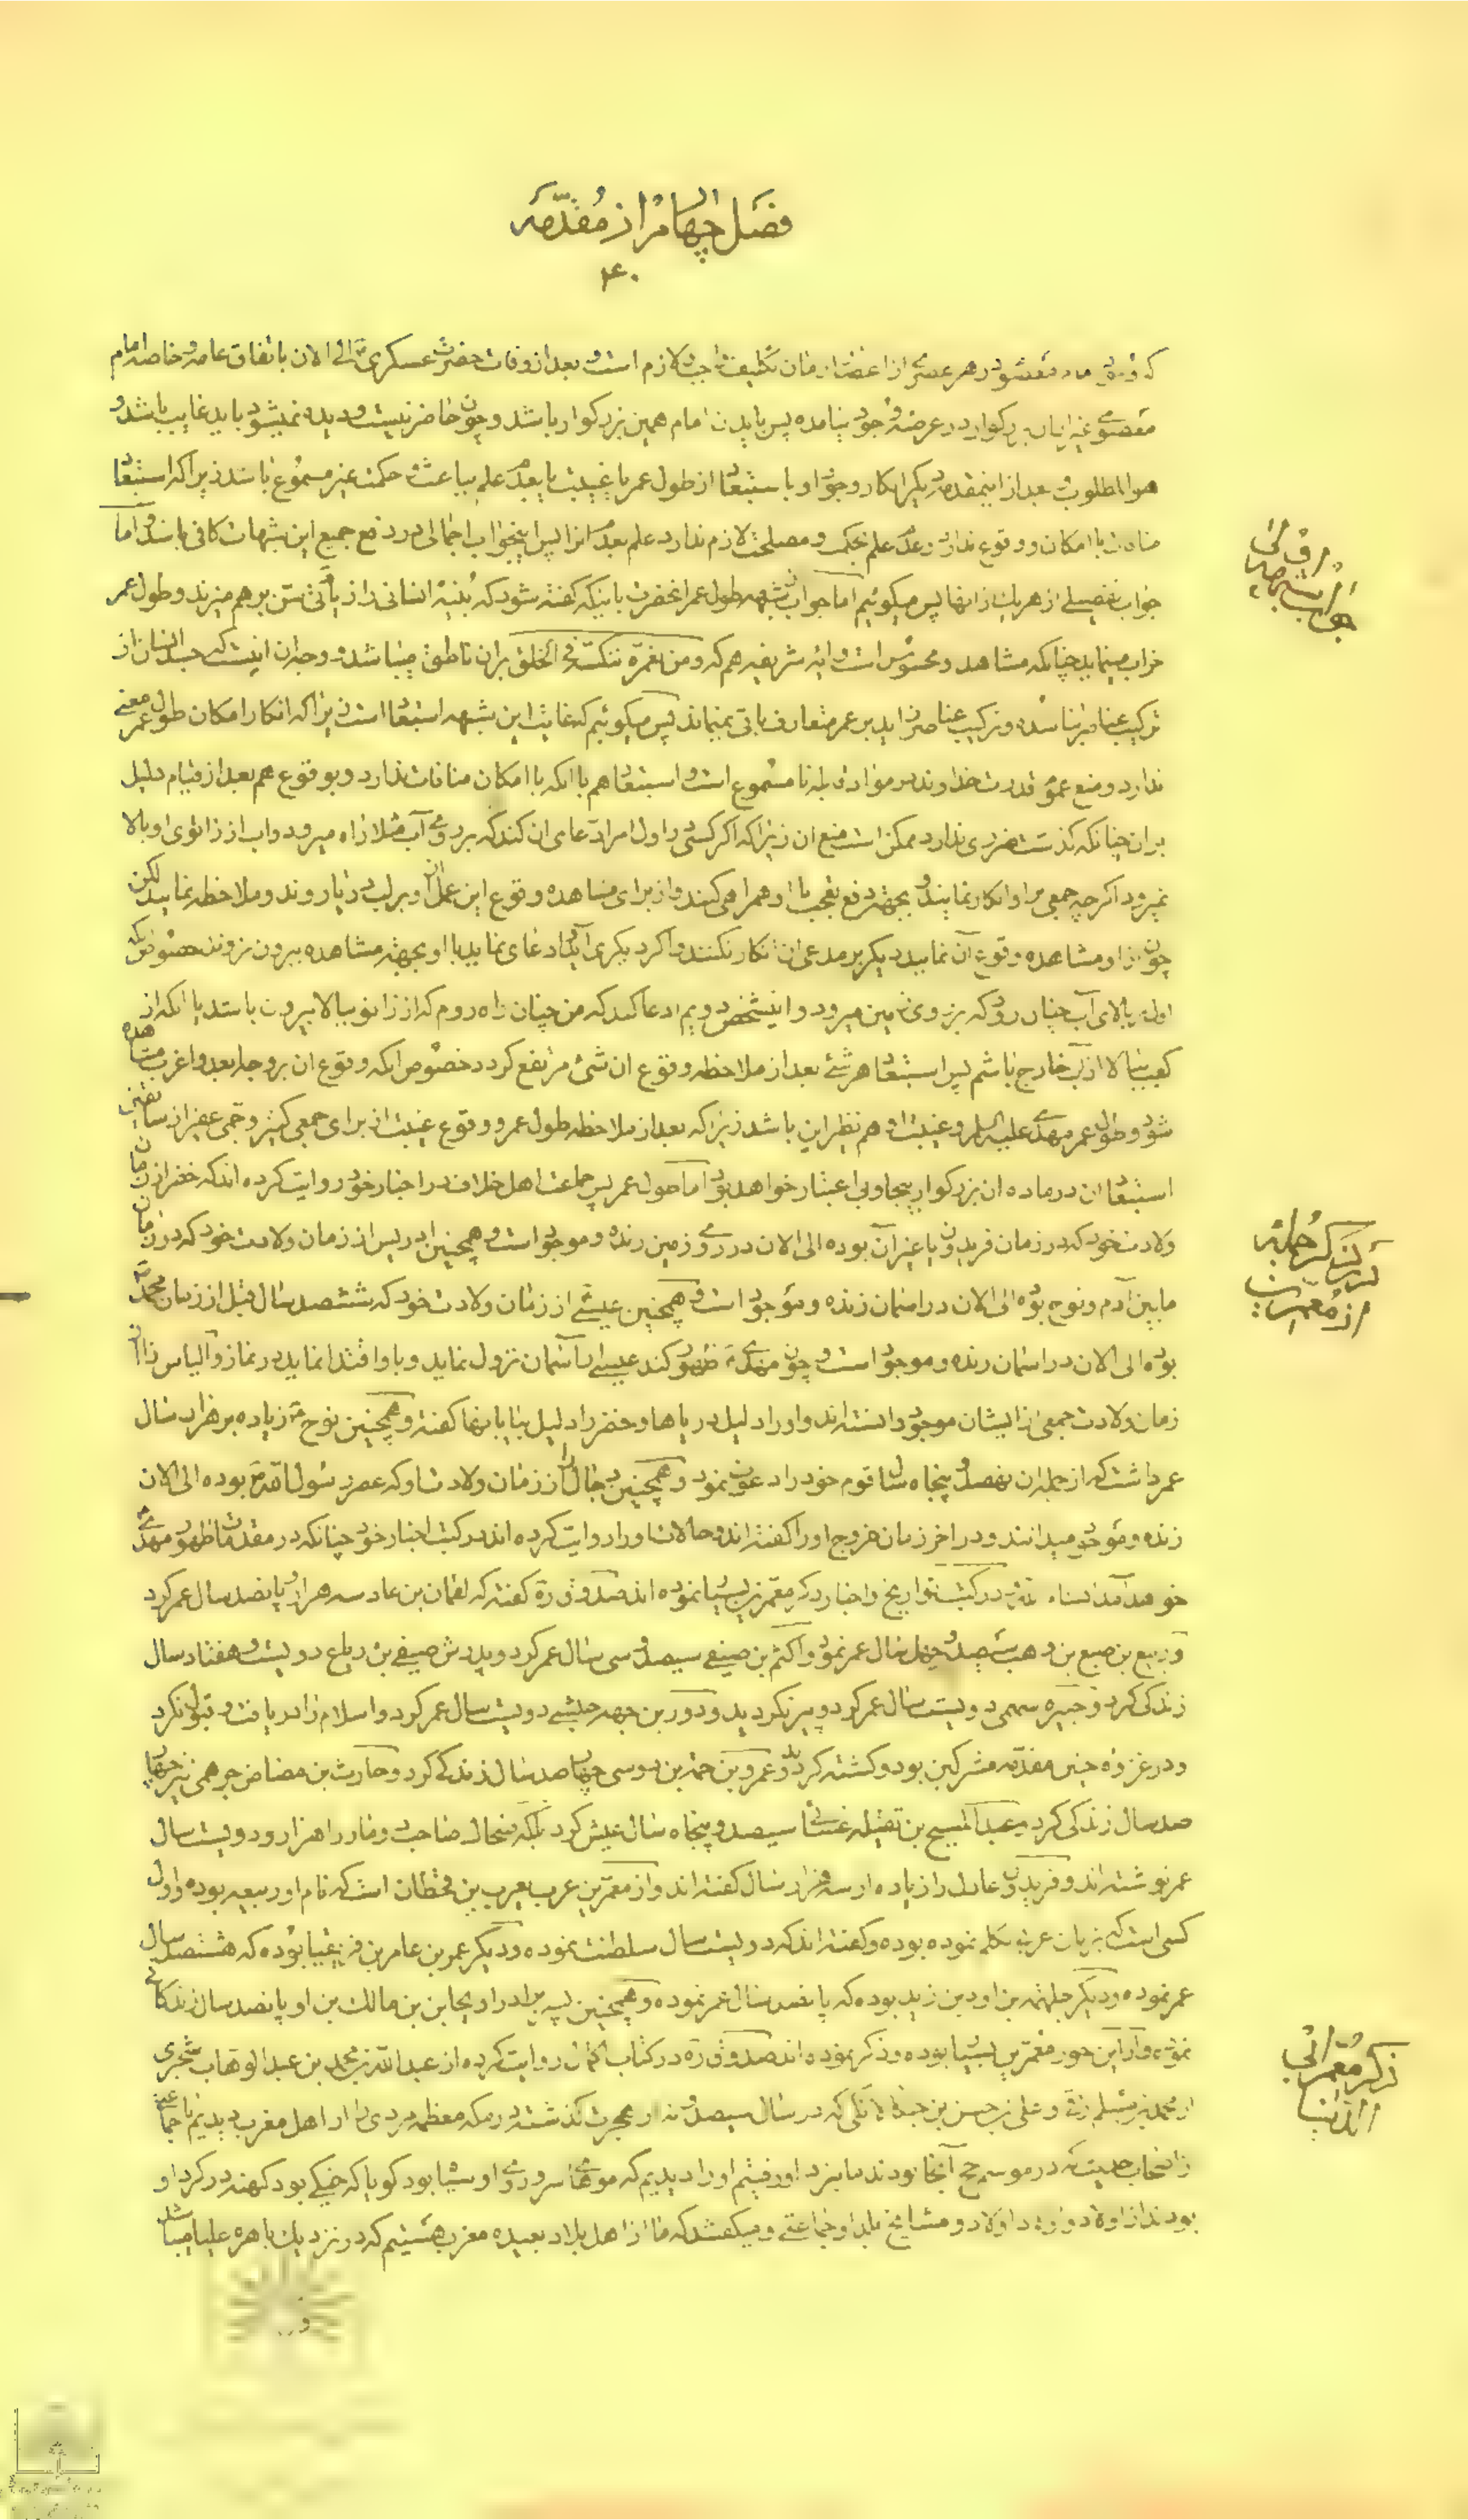 فصل چهارم از مقدمه
۴۰
در هر عصری از اعصار زمان تکلیف واجب و لازم است و بعد از وفات حضرت عسکری الی الان باتفاق عامه و خاصه امام
معصومی غیر از آن بزرکوار در عرصهٔ وجود نیامده پس باید امام همین بزرکوار باشد و چون حاضر نیست و دیده نمیشود باید غایب باشد و
هو المطلوب و بعد از اینمقدمه دیکر انکار وجود او باستبعاد از طول عمر یا غیبت یا بعدم علم بباعث و حکمت غیر مسموع باشد زیرا که استبعاد
منافات با امکان و وقوع ندارد و عدم علم بحکمت و مصلحت لازم ندارد علم بعدم انرا پس اینجواب اجمالی در دفع جمیع این شبهات کافی باشد و اما
جواب تفصیلی از هر یک از انها پس میکوئیم اما جواب از شبهه طول عمر انحضرت باینکه کفته شود که بنیهٔ انسانی را زیاد زیستن بر هم میزند و طول عمر
خراب مینماید چنانکه مشاهد و محسوس است و ایه شریفه هم که و من نعمره ننکسه فی الخلق بران ناطق میباشد و وجه ان اینست که جسد انسان از
ترکیب عناصر بنا شده و ترکیب عناصر زاید بر عمر متعارف باقی نمیماند پس میکوئیم که غایت این شبهه استبعاد است زیرا که انکار امکان طول عمر معنی
ندارد و منع عموم قدرت خداوند در مواد قابله نامسموع است و استبعاد هم با انکه با امکان منافات ندارد و بوقوع هم بعد از قیام دلیل
بران چنانکه کذشت ضرری ندارد ممکن است منع ان زیرا که اکر کسی در اول امر ادعای ان کند که بر روی آب مثلا راه میرود و آب از زانوی او بالا
نمیرود اکرچه جمعی بر او انکار نمایند و بجهة رفع تعجب با او همراهی کنند و از برای مشاهده وقوع این عمل از او بر لب دریا روند و ملاحظه نمایند لکن
چون از او مشاهده وقوع آن نمایند دیکر بر مدعی ان انکار نکنند و اکر دیکری آید و ادعای نماید با او بجهة مشاهده بیرون نروند خصوص که
اولی بالای آب چنان رود که بر روی زمین میرود و اینشخص دویم ادعا کند که من چنان راه روم که از زانو ببالا بیرون باشد یا انکه از
کعب ببالا از آب خارج باشم پس استبعاد هر شئ بعد از ملاحظه وقوع ان شئ مرتفع کردد خصوص انکه وقوع ان بر وجه ابعد و اغرب مشاهده
شود و طول عمر مهدی علیه السلام و غیبت او هم نظیر این باشد زیرا که بعد از ملاحظه طول عمر و وقوع غیبت از برای جمعی کثیر و جمی غفیر از سابقین
استبعاد ان در ماده ان بزرکوار بیجا و بی اعتبار خواهد بود اما طول عمر پس جماعت اهل خلاف در اخبار خود روایت کرده اند که خضر از زمان
ولادت خود که در زمان فریدون یا غیر آن بوده الی الان در روی زمین زنده و موجود است و همچنین ادریس از زمان ولادت خود که در زمان
ما بین آدم و نوح بوده الی الان در اسمان زنده و موجود است و همچنین عیسی از زمان ولادت خود که ششصد سال قبل از زمان محمد
بوده الی الان در اسمان زنده و موجود است و چون مهدی ظهور کند عیسی از آسمان نزول نماید و باو اقتدا نماید در نماز و الیاس را از
زمان ولادت جمعی از ایشان موجود دانسته اند و او را دلیل دریاها و خضر را دلیل بیابانها کفته و همچنین نوح زیاده بر هزار سال
عمر داشت که از جمله ان نهصد و پنجاه سال قوم خود را دعوت نمود و همچنین دجال را از زمان ولادت او که عصر رسول الله بوده الی الان
زنده و موجود میدانند و در اخر زمان خروج او را کفته اند و حالات او را روایت کرده اند در کتب اخبار خود چنانکه در مقدمات ظهور مهدی
خواهد آمد انشاء در کتب تواریخ و اخبار ذکر معمرین بسیار نموده اند صدوق ره کفته که لقمان بن عاد سه هزار و پانصد سال عمر کرد
و ربیع بن ضبع بن وهب سیصد و چهل سال عمر نمود و اکثم بن صیفی سیصد و سی سال عمر کرد و پدرش صیفی بن ریاح دویست و هفتاد سال
زندکی کرد و ضبیره سهمی دویست سال عمر کرد و پیر نکردید و درید بن جشمی دویست سال عمر کرد و اسلام را دریافت و قبول نکرد
و در غزوه حنین مقدمه مشرکین بود و کشته کردید و عمرو بن حممه دوسی چهار صد سال زندکی کرد و حارث بن مضاض جرهمی نیز چهار
صد سال زندکی کرد و عبدالمسیح بن بقیله غسانی سیصد و پنجاه سال عیش کرد بلکه ضحاک صاحب دو مار را هزار و دویست سال
عمر نوشته اند و فریدون عادل را زیاده از هزار سال کفته اند و از معمرین عرب یعرب بن قحطان است که نام او ربیعه بوده و اول
کسی است که بزبان عربی تکلم نموده بوده و کفته اند که دویست سال سلطنت نموده و دیکر عمرو بن عامر بن مزیقیا بوده که هشتصد سال
عمر نموده و دیکر جلهمه بن ادد بن زید بوده که پانصد سال عمر نموده و همچنین پسر برادر او یحابر بن مالک بن ادد پانصد سال زندکانی
نموده و از این جور معمرین بسیار بوده و ذکر نموده اند صدوق ره در کتاب اکمال روایت کرده از عبدالله بن محمد بن عبدالوهاب شجری
از محمد بن مسلم رقی و علی بن حسن بن جنکاء لائکی که در سال سیصد و نه از هجرت کذشته در مکه معظمه مردی را از اهل مغرب دیدیم با جماعتی
از اصحاب حدیث که در موسم حج آنجا بودند ما بنزد او رفتیم او را دیدیم که موهای سر و روی او سیاه بود کویا که خیکی بود کهنه در کرد او
بودند از اولاد و اولاد اولاد و مشایخ بلد او جماعتی و میکفتند که ما از اهل بلاد بعیده مغرب هستیم که در نزدیک باهره علیا میباشد
در ذکر جمله
از معمرین
ذکر معمر ابی
الدنیا